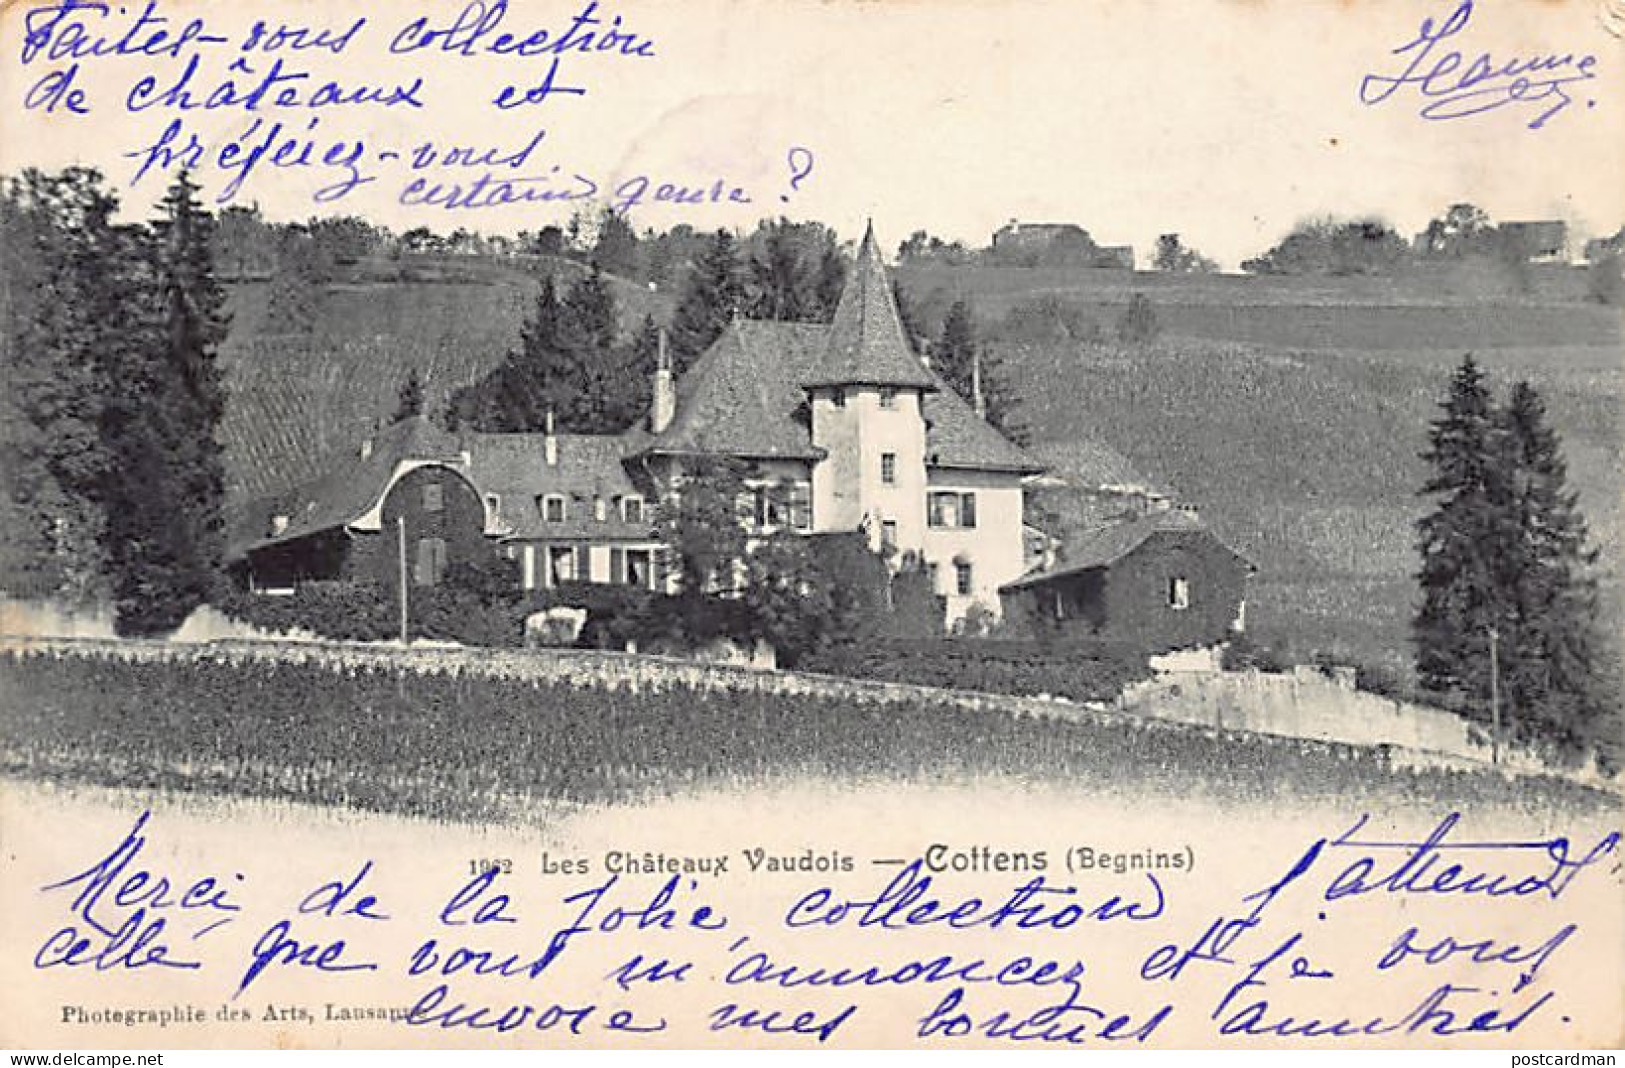 Faites-vous collection
de châteaux et
préférez-vous
certain genre ?
Jeanne
1962 Les Châteaux Vaudois — Cottens (Begnins)
Merci de la jolie collection j'attend
celle que vous m'annoncez et je vous
envoie mes bonnes amitiés.
Photographie des Arts, Lausanne
postcardman